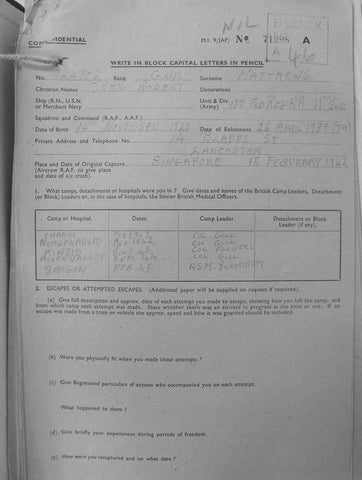 CONFIDENTIAL
NIL
M.I. 9/JAP/ No 71298 A
BLOCK
A
46
WRITE IN BLOCK CAPITAL LETTERS IN PENCIL
No. Rank GNR Surname MATTHEWS
Christian Names JOHN ROBERT Decorations
Ship (R.N., U.S.N. or Merchant Navy Unit & Div. (Army) 137 FD REG RA 11th IND
Squadron and Command (R.A.F., A.A.F.)
Date of Birth 14 NOVEMBER 1920 Date of Enlistment 26 APRIL 1939 (TA)
Private Address and Telephone No. 14 BLADES ST
LANCASTER
Place and Date of Original Capture SINGAPORE 15 FEBURARY 1942
(Aircrew R.A.F. to give place and date of a/c crash).
1. What camps, detachments or hospitals were you in ? Give dates and names of the British Camp Leaders, Detachment
(or Block) Leaders or, in the case of hospitals, the Senior British Medical Officers.
Camp or Hospital. Dates. Camp Leader. Detachment or Block Leader (if any).
CHANGI FEB 1942 COL GILL
1942 COL GILL
COL FLOWERS
RIVER VALLEY COL GILL
SAIGON FEB 45 RSM
2. ESCAPES OR ATTEMPTED ESCAPES. (Additional paper will be supplied on request if required).
(a) Give full description and approx. date of each attempt you made to escape, showing how you left the camp, and
from which camp each attempt was made. State whether there was an air-raid in progress at the time or not. If an
escape was made from a train or vehicle the approx. speed and how it was guarded should be included.
(b) Were you physically fit when you made these attempts ?
(c) Give Regimental particulars of anyone who accompanied you on each attempt.
What happened to them ?
(d) Give briefly your experiences during periods of freedom.
(e) How were you recaptured and on what date ?